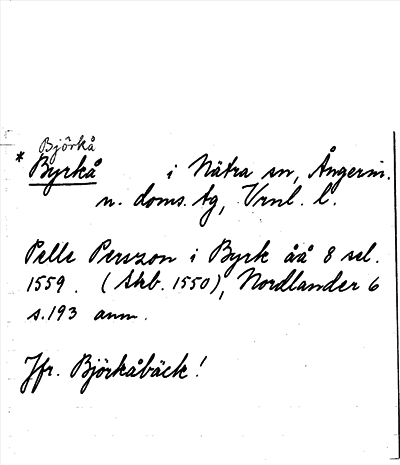 Björkå
* Byrkå i Nätra sn, Ångerm.
n. doms. tg, Vrnl. l.
Pelle Persson i Byrk åå 8 sel.
1559. (Skb. 1550), Nordlander 6
s.193 anm.
Jfr. Björkåbäck!